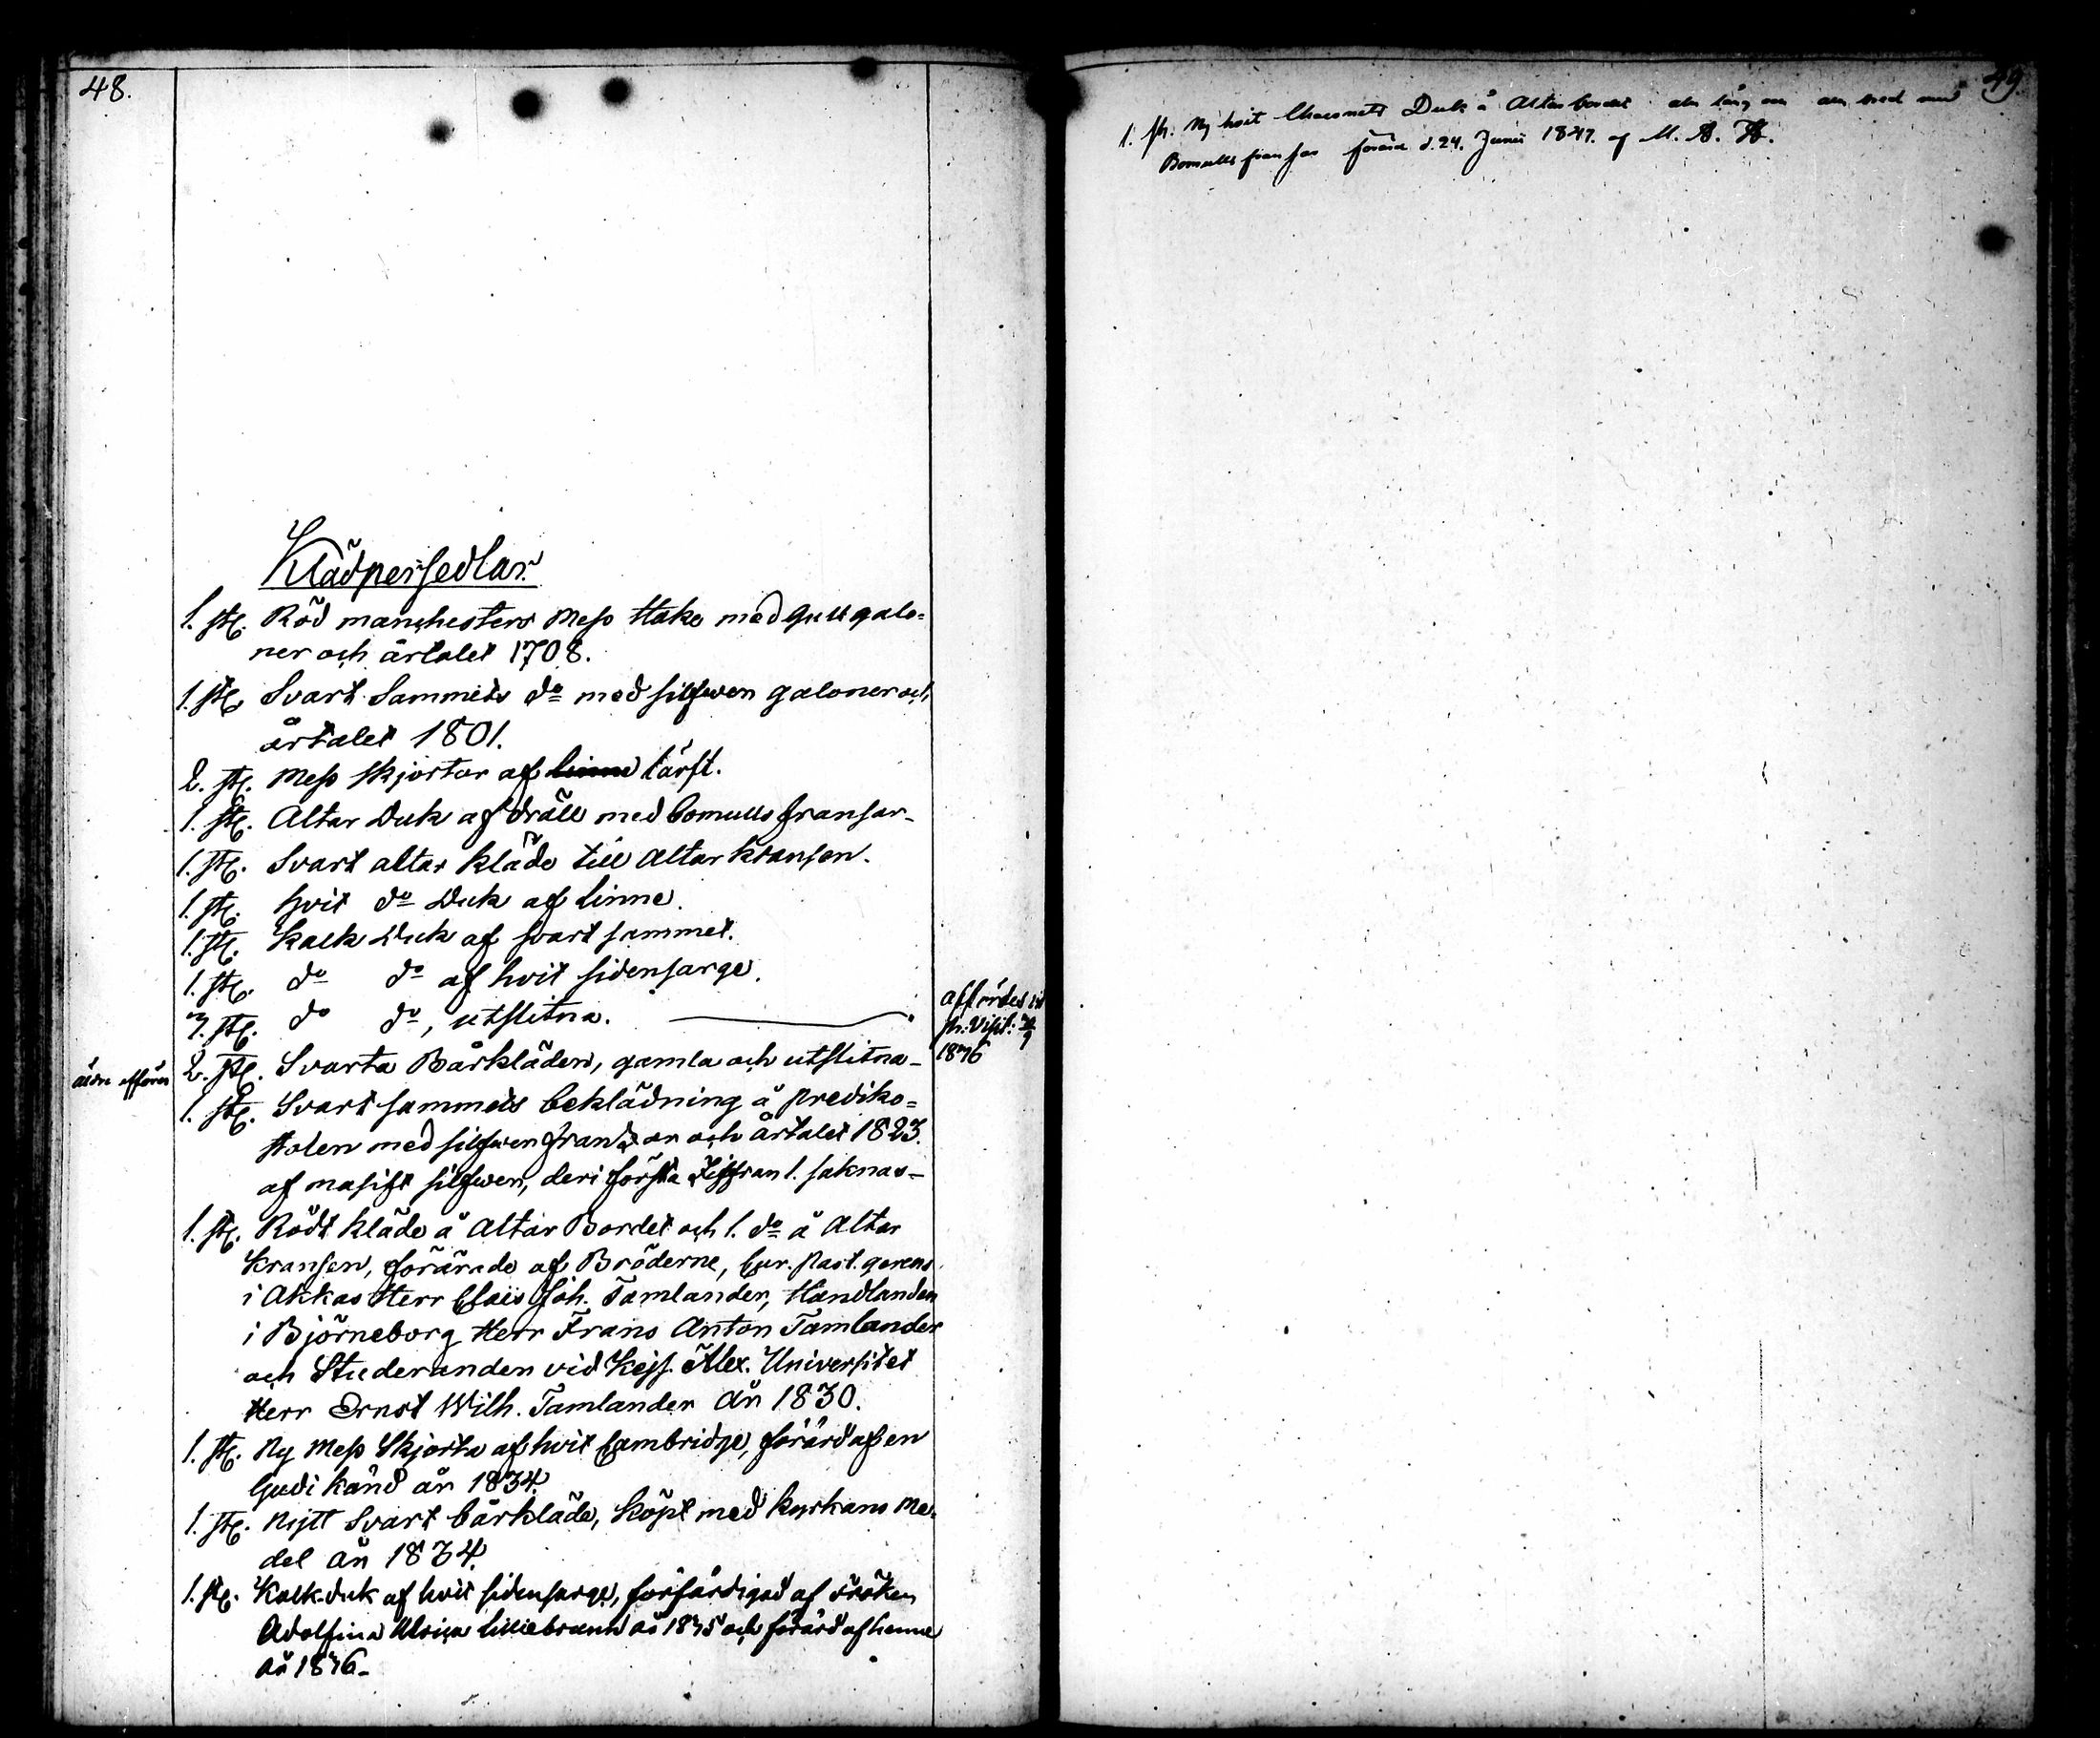 48.
Klädpersedlar.
1. st. Röd manchesters Mess Hake med Gull galo-
ner och årtalet 1708.
1. st. Svart Sammets do med silfwer galoner och
årtalet 1801.
2. st. Mess skjortor af linne lärft.
1. st. Altar Duk af dräll med bomulls fransar.
1. st. Svart altar kläde till Altar kransen.
1. st. hvit do Duk af linne.
1. st. Kalk Duk af svart sammet.
1. st. do do af hvit sidensarge.
3. st. do do, utslitna.
affördes vid
pr: Visit:
1846
2. st. Svarta Bårkläden, gamla och utslitna
1. st. Svart sammets beklädning å predik-
stolen med silfwer frandsar och årtalet 1823.
af massift silfwer, deri första Ziffran 1. saknas
1. st. Rödt kläde å Altar Bordet och 1. do å Altar
Kransen, förärade af Bröderne, Cur. Past. gerens
i Akkas Herr Esais Joh. Tamlander, Handlanden
i Björneborg Herr Frans Anton Tamlander
och Studeranden vid Kejs. Alex. Universitet
Herr Ernst Wilh. Tamlander år 1830.
1. st. Ny Mess Skjorta af hvit Cambridge, förärd af en
Gudi känd år 1834.
1. st. Nytt Svart bårkläde, köpt med kyrkans me-
del år 1834.
1. st. Kalk-duk af hvit sidensarge, förfärdigad af Fröken
Adolfina Ulrica Lilliebrunn år 1845 och förärd af henne
år 1846.
49.
1. st. Ny hvit Duk å Altar bordet aln lång och aln bred med
Bomulls fransar förärad d. 24. Junii 1847. af M.